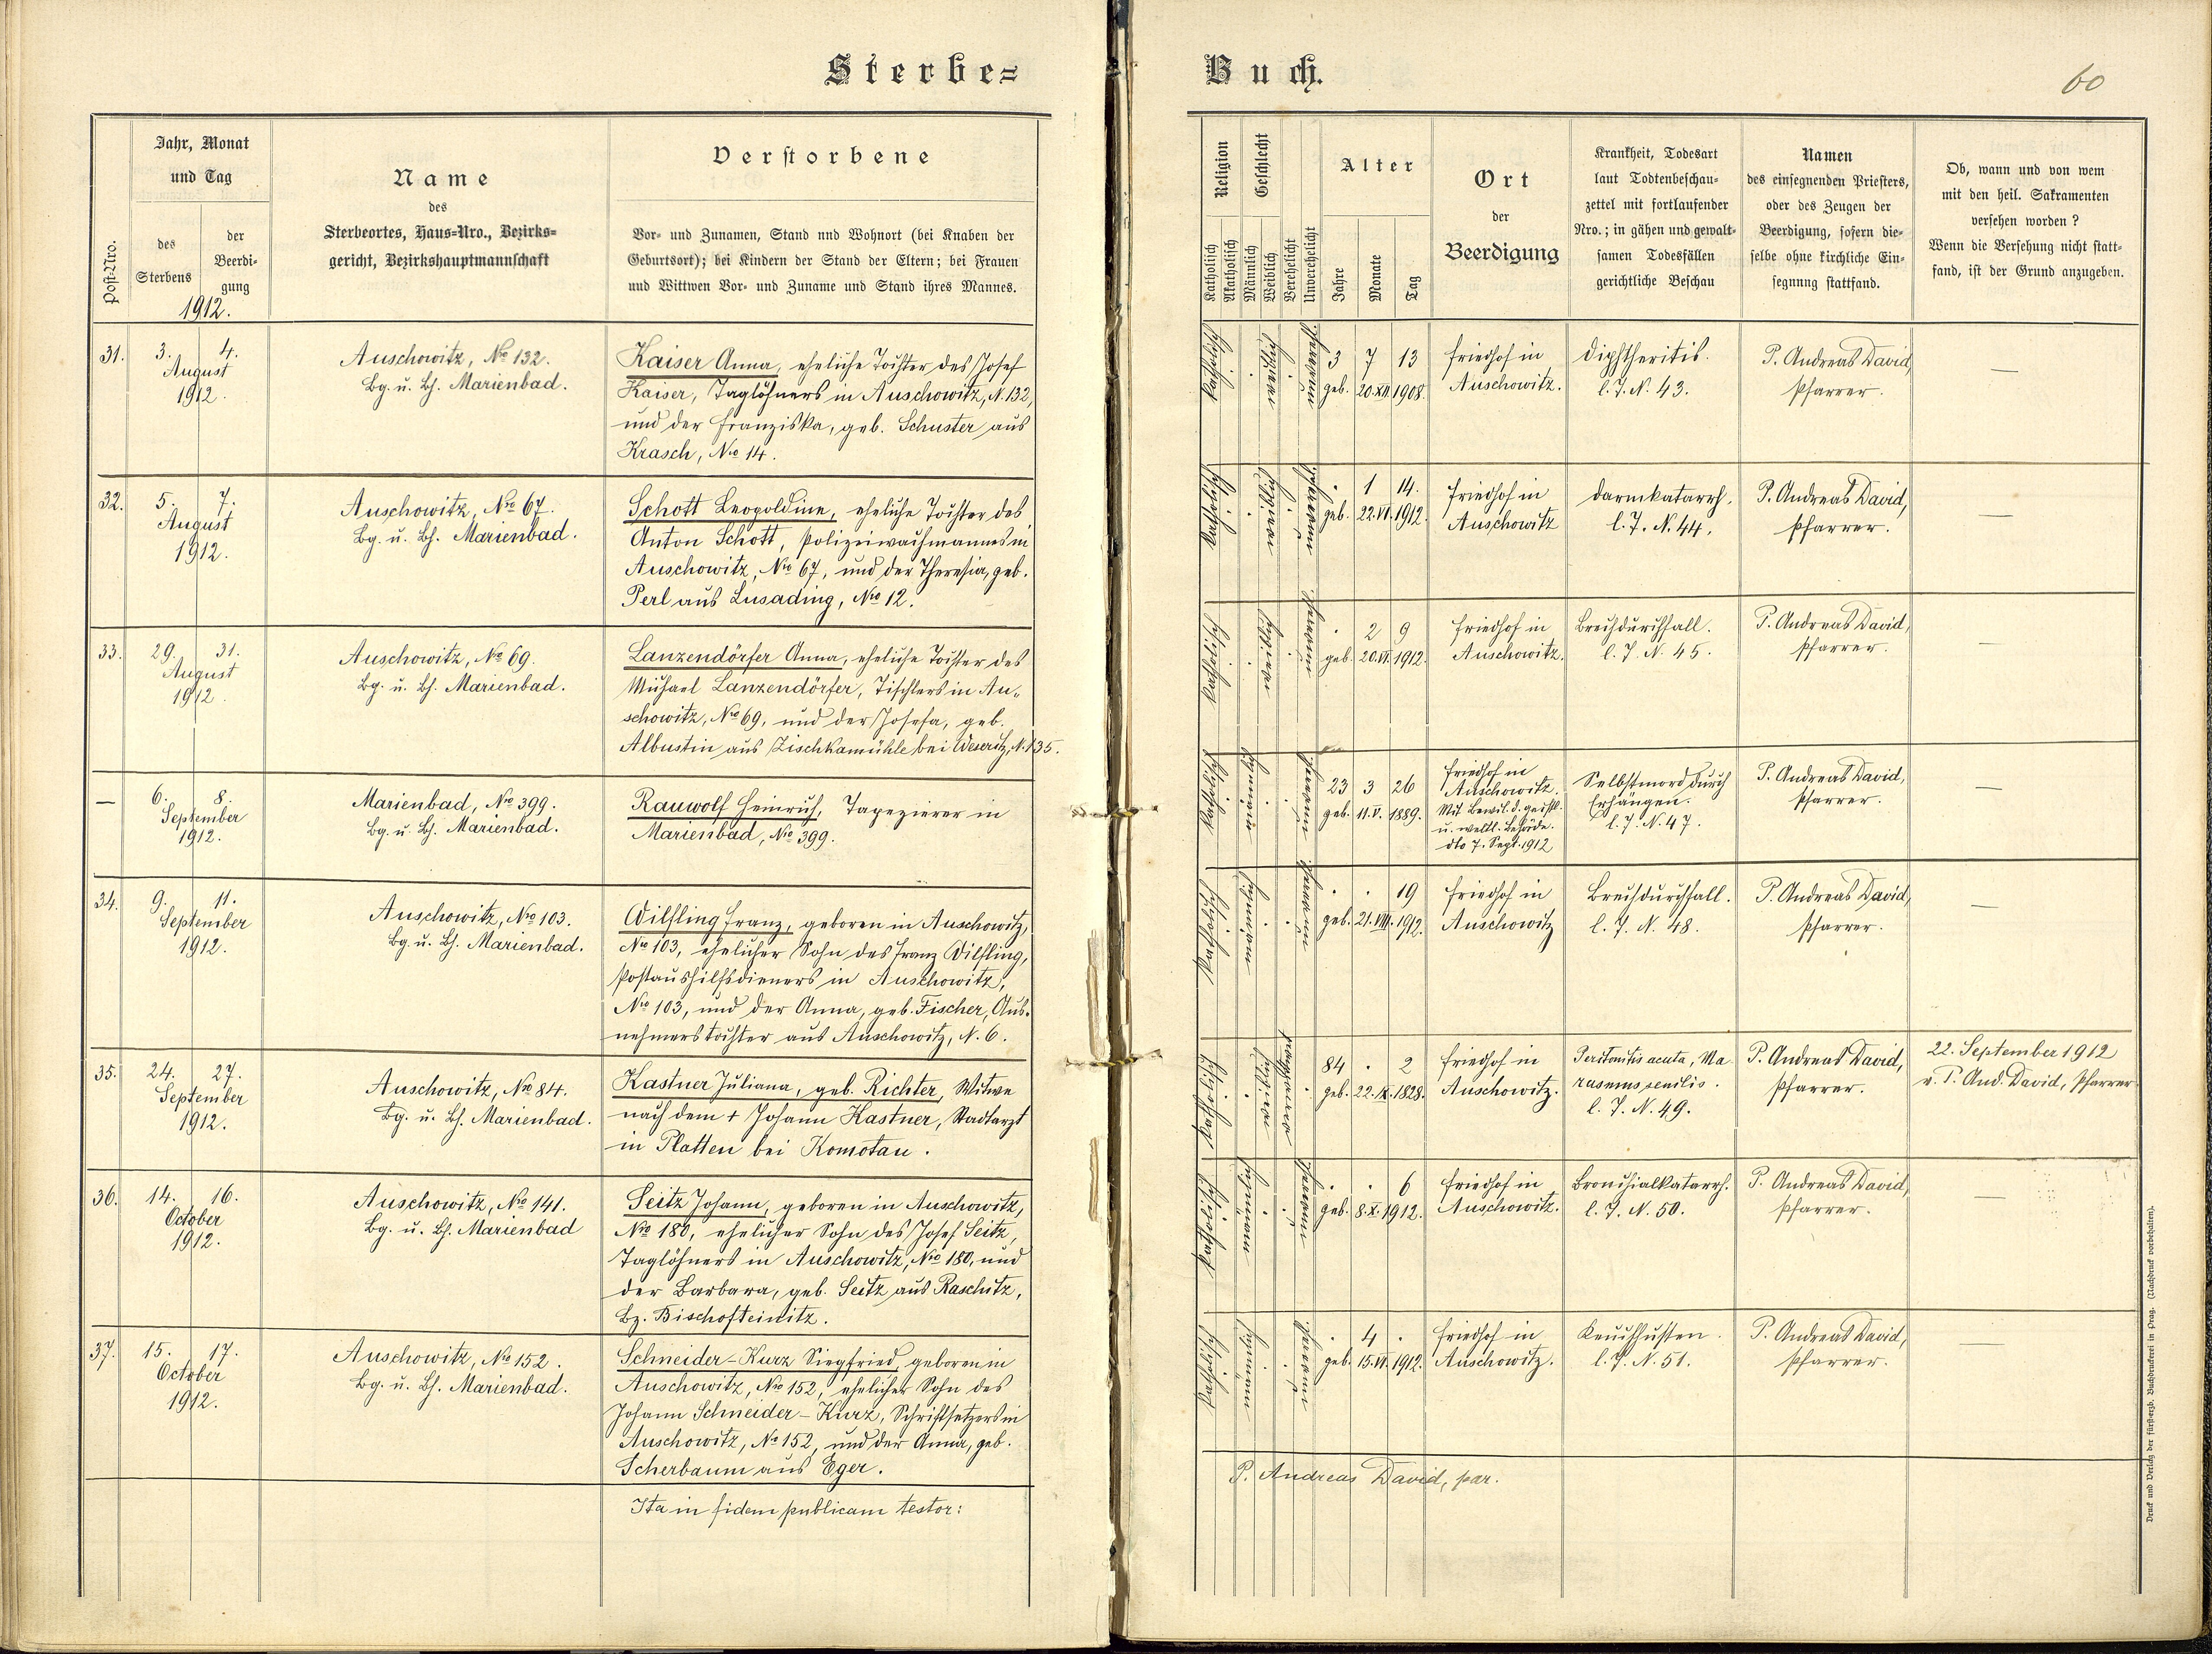 Sterbe=
Buch.
60
Post-Nro.
Jahr, Monat
und Tag
des
Sterbens
der
Beerdi-
gung
1912.
Name
des
Sterbeortes, Haus=Nro., Bezirks=
gericht, Bezirkshauptmannschaft
Verstorbene
Vor- und Zunamen, Stand nnd Wohnort (bei Knaben der
Geburtsort); bei Kindern der Stand der Eltern; bei Frauen
und Wittwen Vor- und Zuname und Stand ihres Mannes.
Religion
Katholisch
Akatholisch
Geschlecht
Männlich
Weiblich
Verehelicht
Unverehelicht
Alter
Jahre
Monate
Tag
Ort
der
Beerdigung
Krankheit, Todesart
laut Todtenbeschau-
zettel mit fortlaufender
Nro.; in gähen und gewalt-
samen Todesfällen
gerichtliche Beschau
Namen
des einsegnenden Priesters,
oder des Zeugen der
Beerdigung, sofern die-
selbe ohne kirchliche Ein-
segnnng stattfand.
Ob, wann und von wem
mit den heil. Sakramenten
versehen worden?
Wenn die Versehung nicht statt-
fand, ist der Grund anzugeben.
31. 3. 4.
August
1912.
Auschowitz, No 132.
Bg. u. Bh. Marienbad.
Kaiser Anna, eheliche Tochter des Josef
Kaiser, Taglöhners in Auschowitz, N. 132,
und der Franziska, geb. Schuster aus
Krasch, Nro 14.
katholisch
weiblich
unverehel.
3 7 13
geb. 20.XII.1908.
Friedhof in
Auschowitz.
Diphtheritis.
l. J. N. 43.
P. Andreas David,
Pfarrer.
—
32. 5. 7.
August
1912.
Auschowitz, Nro 67.
Bg. u. Bh. Marienbad.
Schott Leopoldine, eheliche Tochter des
Anton Schott, Polizeiwachmannes in
Auschowitz, Nro 67, und der Theresia, geb.
Perl aus Lusading, Nro 12.
katholisch
weiblich
. 1 14.
geb. 22.VI.1912.
Friedhof in
Auschowitz
Darmkatarrh.
l. J. N. 44.
P. Andreas David,
Pfarrer.
—
33. 29. 31.
August
1912.
Auschowitz, No 69.
Bg. u. Bh. Marienbad.
Lanzendörfer Anna, eheliche Tochter des
Michael Lanzendörfer, Tischlers in Au-
schowitz, Nro 69, und der Josefa, geb.
Albustin aus Zischkamühle bei Weseritz, N. 135.
katholisch
weiblich
. 2 9
geb. 20.VI.1912.
Friedhof in
Auschowitz.
Brechdurchfall.
l. J. N. 45.
P. Andreas David,
Pfarrer.
—
— 6. 8.
September
1912.
Marienbad, Nro 399.
Bg. u. Bh. Marienbad.
Rauwolf Heinrich, Tapezierer in
Marienbad, Nro 399.
katholisch
23 3 26
geb. 11.V.1889.
Friedhof in
Auschowitz.
Mit Bewil. d. geistl.
u. weltl. Behörde.
dto 7. Sept. 1912
Selbstmord durch
Erhängen.
l. J. N. 47.
P. Andreas David,
Pfarrer.
—
34. 9. 11.
September
1912.
Auschowitz, Nro 103.
Bg. u. Bh. Marienbad.
Wilfling Franz, geboren in Auschowitz,
Nro 103, ehelicher Sohn des Franz Wilfling,
Postaushilfsdieners in Auschowitz,
Nro 103, und der Anna, geb. Fischer, Aus-
nehmerstochter aus Auschowitz, N. 6.
katholisch
. . 19
geb. 21.VIII.1912.
Friedhof in
Auschowitz
Brechdurchfall.
l. J. N. 48.
P. Andreas David,
Pfarrer.
—
35. 24. 27.
September
1912.
Auschowitz, Nro 84.
Bg. u. Bh. Marienbad.
Kastner Juliana, geb. Richter, Witwe
nach dem + Johann Kastner, Stadtarzt
in Platten bei Komotau.
katholisch
weiblich
84 . 2
geb. 22.IX.1828.
Friedhof in
Auschowitz.
Peritonitis acuta, Ma-
rasmus senilis.
l. J. N. 49.
P. Andreas David,
Pfarrer.
22. September 1912
v. P. And. David, Pfarrer
36. 14. 16.
October
1912.
Auschowitz, Nro 141.
Bg. u. Bh. Marienbad
Seitz Johann, geboren in Auschowitz,
Nro 180, ehelicher Sohn des Josef Seitz,
Taglöhners in Auschowitz, Nro 180, und
der Barbara, geb. Seitz aus Raschitz,
Bz. Bischofteinitz.
katholisch
. . 6
geb. 8.X.1912.
Friedhof in
Auschowitz.
Bronchialkatarrh.
l. J. N. 50.
P. Andreas David,
Pfarrer.
—
37. 15. 17.
October
1912.
Auschowitz, Nro 152.
Bg. u. Bh. Marienbad.
Schneider-Kurz Siegfried, geboren in
Auschowitz, Nro 152, ehelicher Sohn des
Johann Schneider-Kurz, Schriftsetzers in
Auschowitz, No 152, und der Anna, geb.
Scherbaum aus Eger.
katholisch
. 4 .
geb. 15.VI.1912.
Friedhof in
Auschowitz.
Keuchhusten.
l. J. N. 51.
P. Andreas David,
Pfarrer.
—
Ita in fidem publicam testor:
P. Andreas David, par.
Druck und Verlag der fürst-erzb. Buchdruckerei in Prag. (Nachdruck vorbehalten).